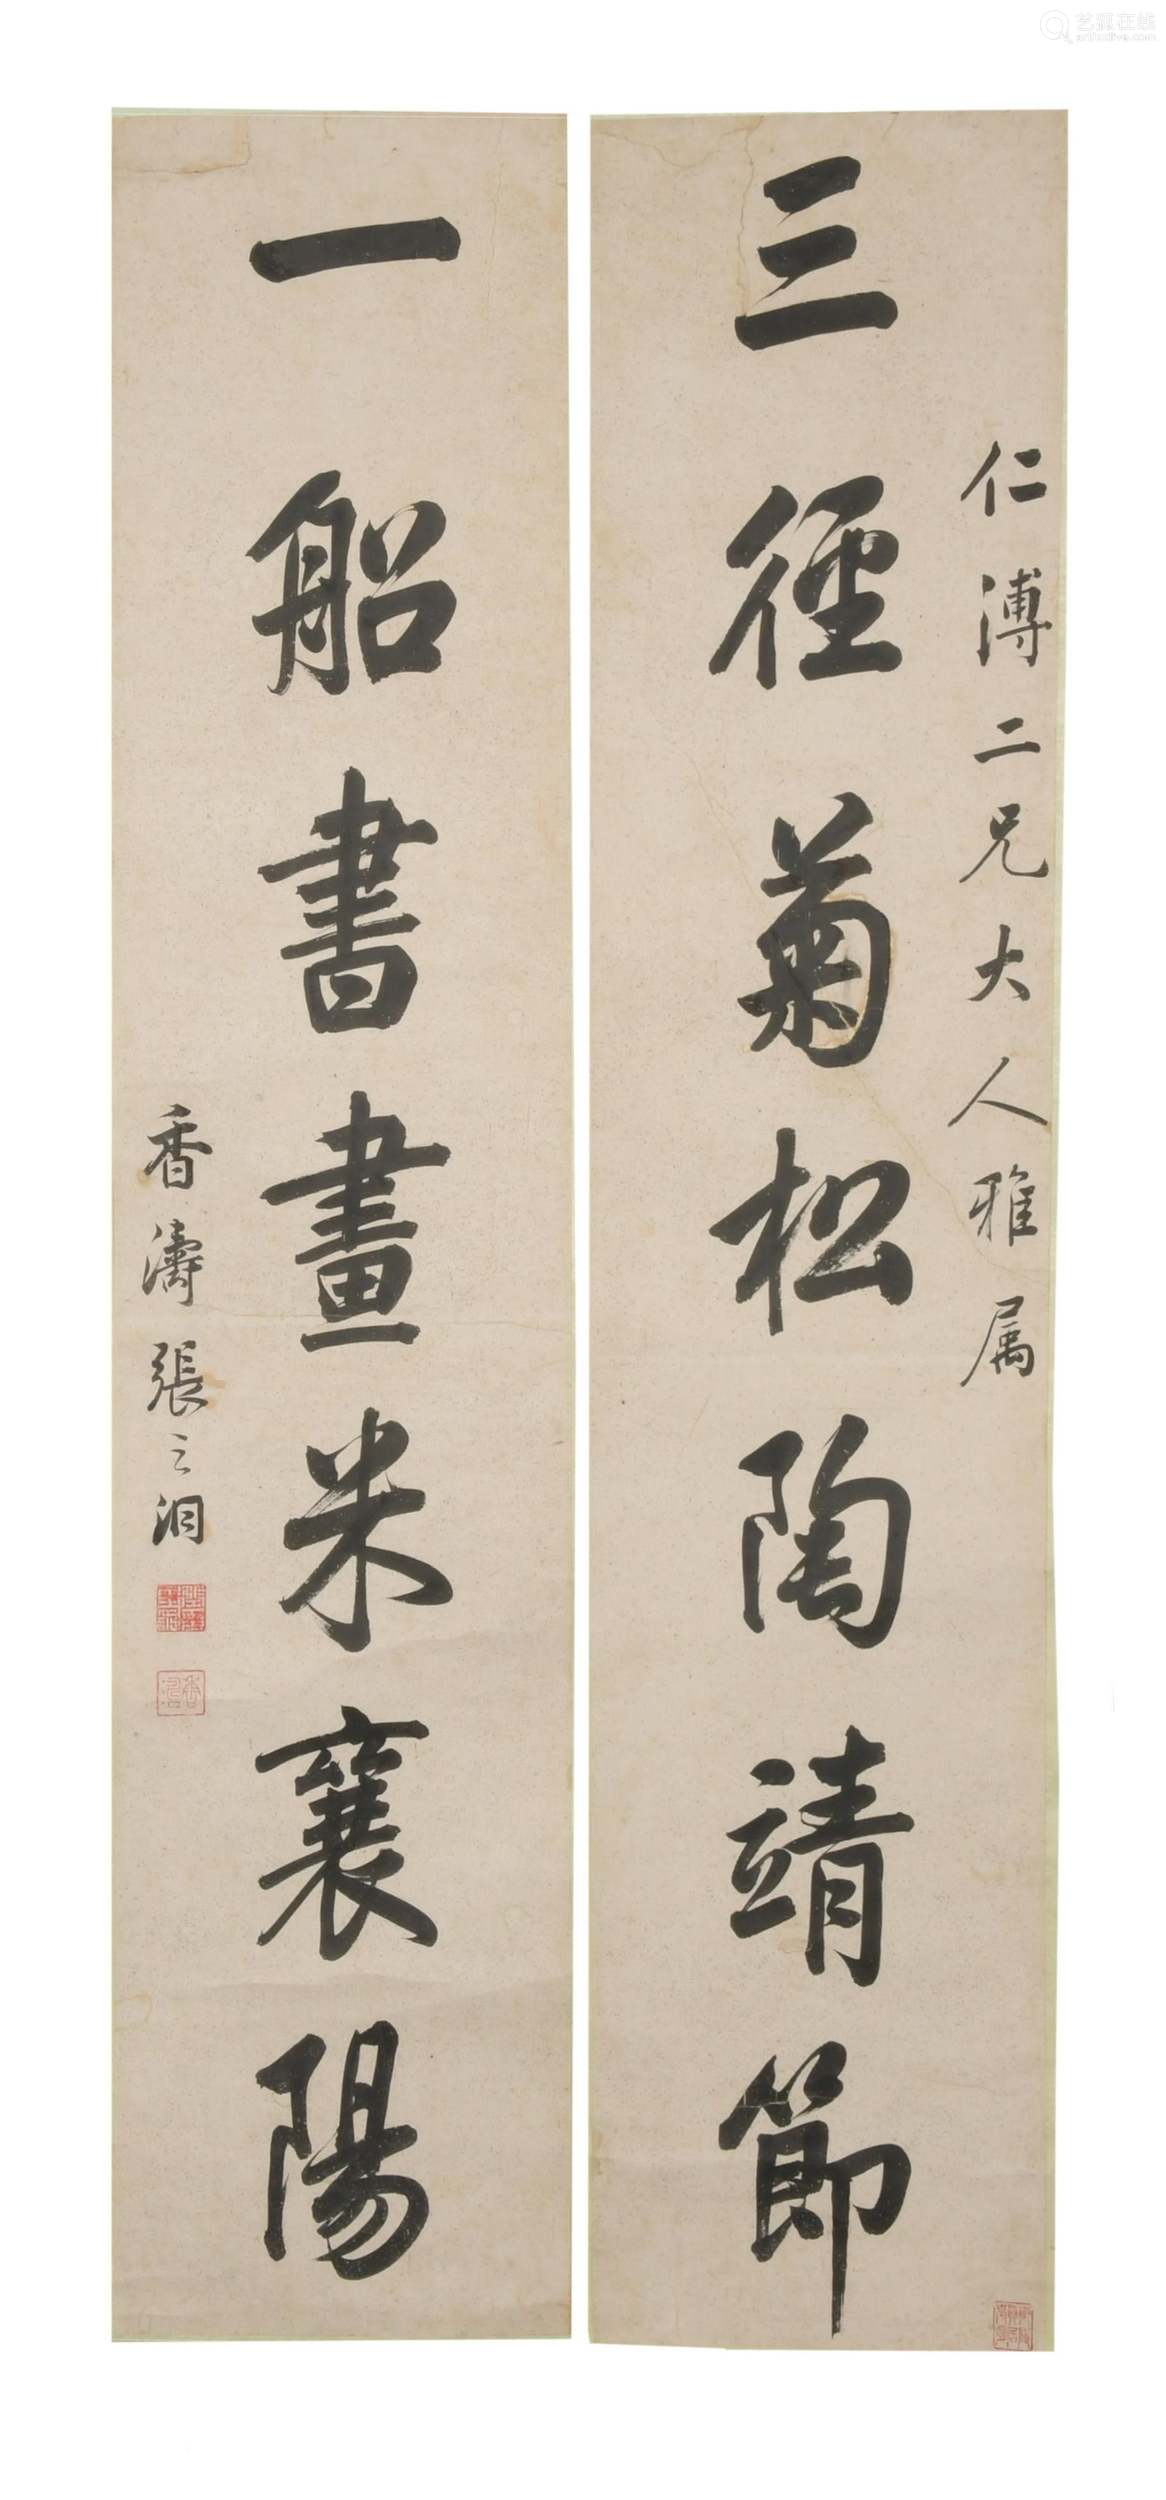 仁溥二兄大人雅属
三徑菊松陶靖節
一船書畫米襄陽
香濤張之洞
艺狐在线
artfoxlive.com